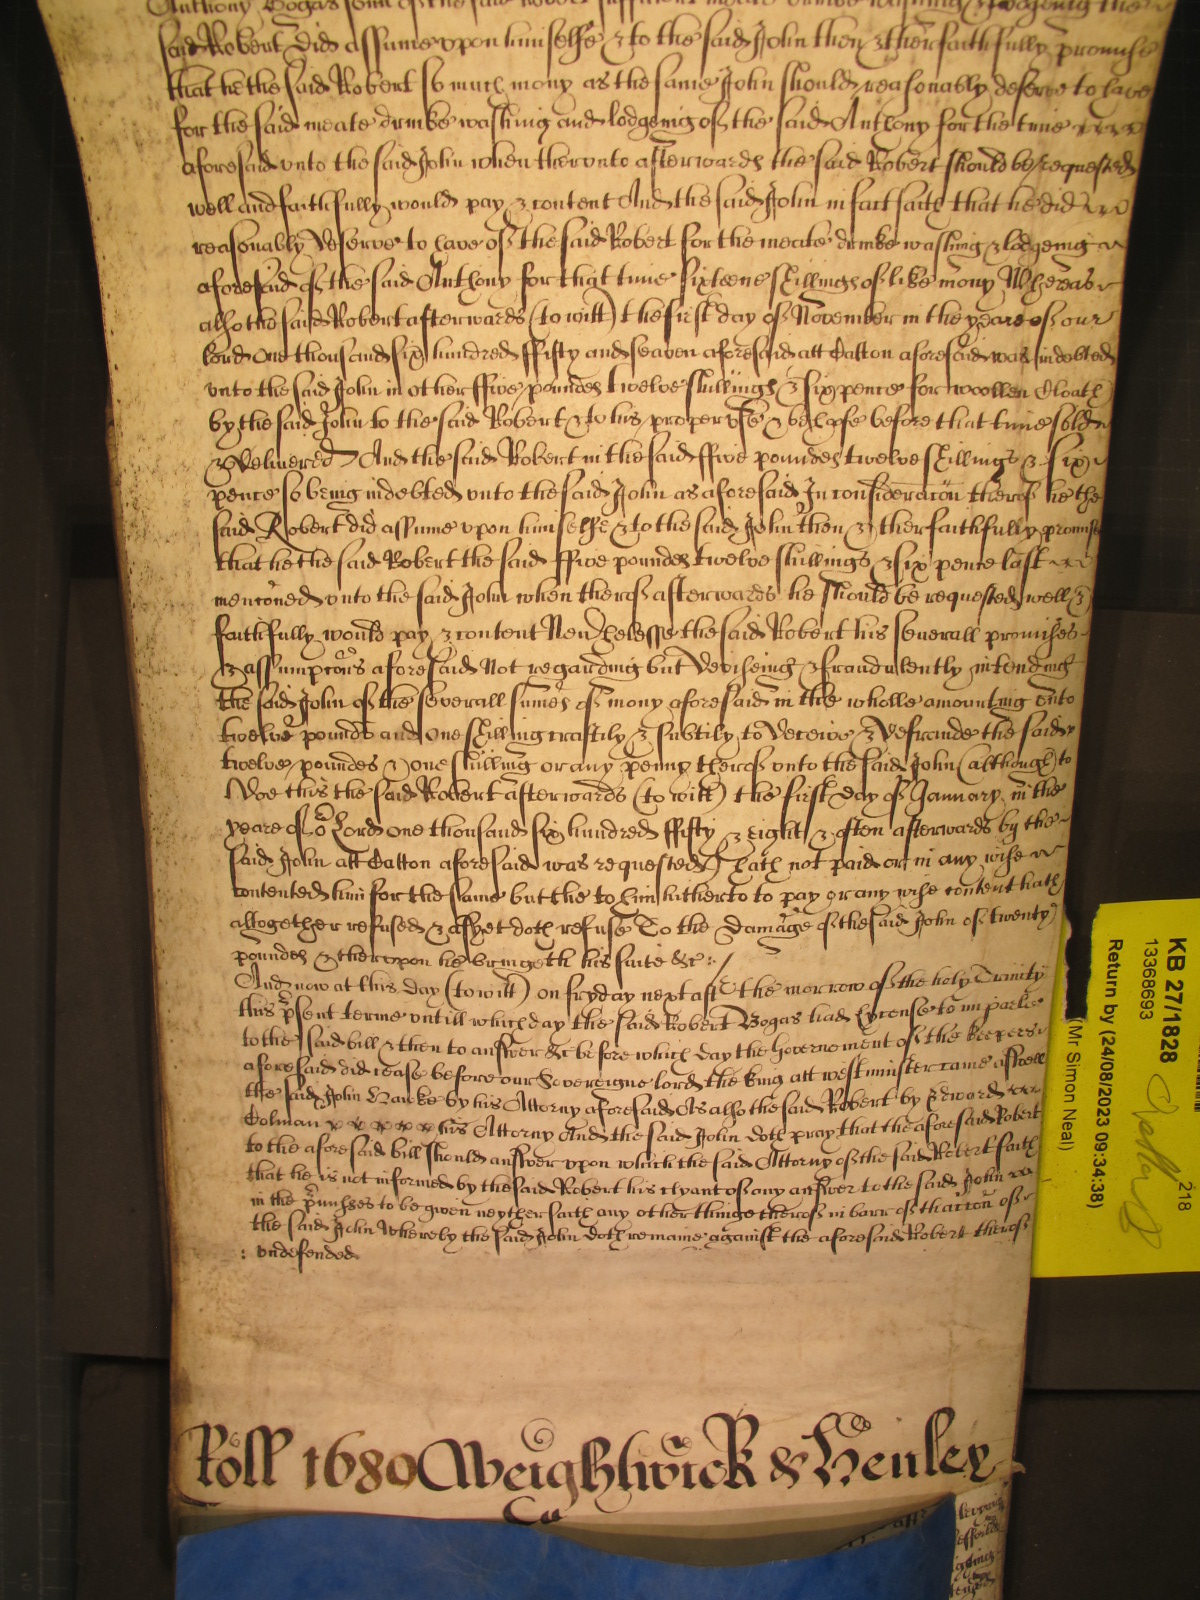 Anthony Bogas sonn of the said Robert sufficient meate drinke washing & lodgeing the
said Robert did assume upon himselfe & to the said John then & there faithfully promise
that he the said Robert so much mony as the same John should reasonably deserve to have
for the said meate drinke washing and lodgeing of the said Anthony for the time
aforesaid unto the said John when therunto afterwards the said Robert should be requested
well and faithfully would pay & content And the said John in fact saith that he did
reasonably deserve to have of the said Robert for the meate drinke washing & lodgeing
aforesaid of the said Anthony for that time sixteene shillings of like mony Whereas
also the said Robert afterwards (to witt) the first day of November in the yeare of our
lord One thousand six hundred ffifty and seaven aforesaid att Catton aforesaid was indebted
unto the said John in other ffive poundes twelve shillings & six pence for woollen Cloath
by the said John to the said Robert & to his proper use & behoofe before that time sold
& Delivered And the said Robert in the said ffive poundes twelve shillings & six
pence so being indebted unto the said John as aforesaid In consideracon therof he the
said Robert did assume upon himselfe & to the said John then & ther faithfully promise
that he the said Robert the said ffive poundes twelve shillings & six pence last
menconed unto the said John when therof afterwards he should be requested well &
faithfully would pay & content Neverthelesse the said Robert his severall promises
& assumpcons aforesaid Not regarding but Deviseing & fraudulently intending
the said John of the severall sumes of mony aforesaid in the wholle amounting unto
twelve pounds and One shilling craftily & subtily to Deceive & Defraude the said
twelve poundes & one shilling or any penny therof unto the said John (although to
Doe this the said Robert afterwards (to witt) the first day of January in the
yeare of or Lord one thousand six hundred ffifty & eight & often afterwards by the
said John att Catton aforesaid was requested) hath not paid or in any wise
contented him for the same but the to him hitherto to pay or any wise content hath
altogether refused & as yet doth refuse To the Damage of the said John of twenty
poundes & therupon he bringeth his suite &c :/
And now at this day (to witt) on fryday next aft the morrow of the holy Trinity
this psent terme untill which day the said Robert Bogas had lycense to imparle
to the said bill & then to answer &c before which day the Governement of the keepers
aforesaid did cease before our Sovereigne lord the king att westminster came aswell
the said John by his Attorny aforesaid As also the said Robert by Edward
Colman his Attorny And the said John doth pray that the aforesaid Robert
to the aforesaid bill should answer upon which the said Attorny of the said Robert saith
that he is not informed by the said Robert his clyant of any answer to the said John
in the pmisses to be given neyther saith any other thinge therof in barr of thaccon of
the said John Whereby the said John doth remaine against the aforesaid Robert therof
: undefended
Roll 1680 Weightwick & Henley
KB 27/1828
13368693
Return by (24/08/2023 09:34:38)
(Mr Simon Neal)
218